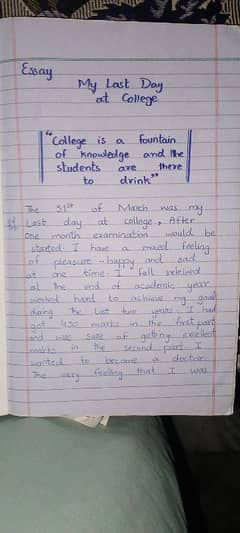 Essay
My Last Day
at College
"College is a fountain
of knowledge and the
students are there
to drink"
The 31st of March was my
Last day at college, After
one month examination would be
started I have a mixed feeling
of pleasure-happy and sad
at one time I fell releived
at the end of academic year
worked hard to achieve my goal
during the last two years. I had
got 450 marks in the first part
and was sure of getting excellent
marks in the second part I
wanted to became a doctor
The very feeling that I was